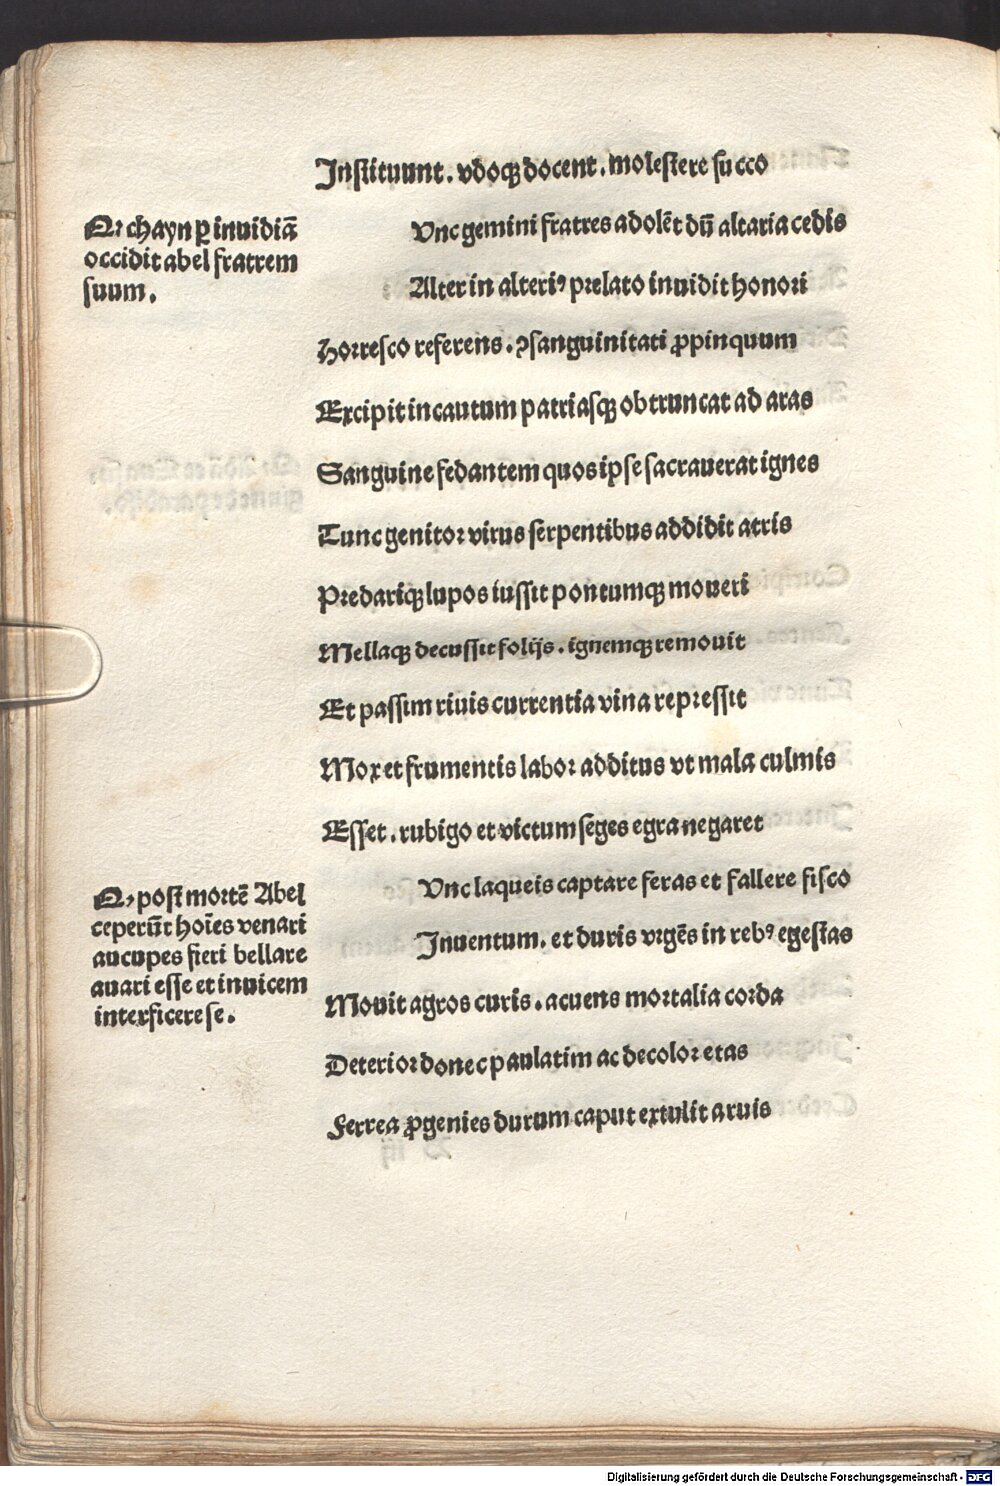 Instituunt. vdoqꝫ docent. molestere succo
Q, chayn ꝑ inuidiā
occidit abel fratrem
suum.
Vnc gemini fratres adolēt dū altaria cedis
Alter in alteriꝰ prelato inuidit honori
Horresco referens. ꝯsanguinitati ꝓpinquum
Excipit incautum patriasqꝫ obtruncat ad aras
Sanguine fedantem quos ipse sacrauerat ignes
Tunc genitor virus serpentibus addidit atris
Predariqꝫ lupos iussit pontumqꝫ moueri
Mellaqꝫ decussit folijs. ignemqꝫ remouit
Et passim riuis currentia vina repressit
Mox et frumentis labor additus vt mala culmis
Esset. rubigo et victum seges egra negaret
Q, post mortē Abel
ceperūt hoīes venari
aucupes fieri bellare
auari esse et inuicem
interficere se.
Vnc laqueis captare feras et fallere fisco
Inuentum. et duris vrgēs in rebꝰ egestas
Mouit agros curis. acuens mortalia corda
Deterior donec paulatim ac decolor etas
Ferrea ꝓgenies durum caput extulit aruis
Digitalisierung gefördert durch die Deutsche Forschungsgemeinschaft - DFG